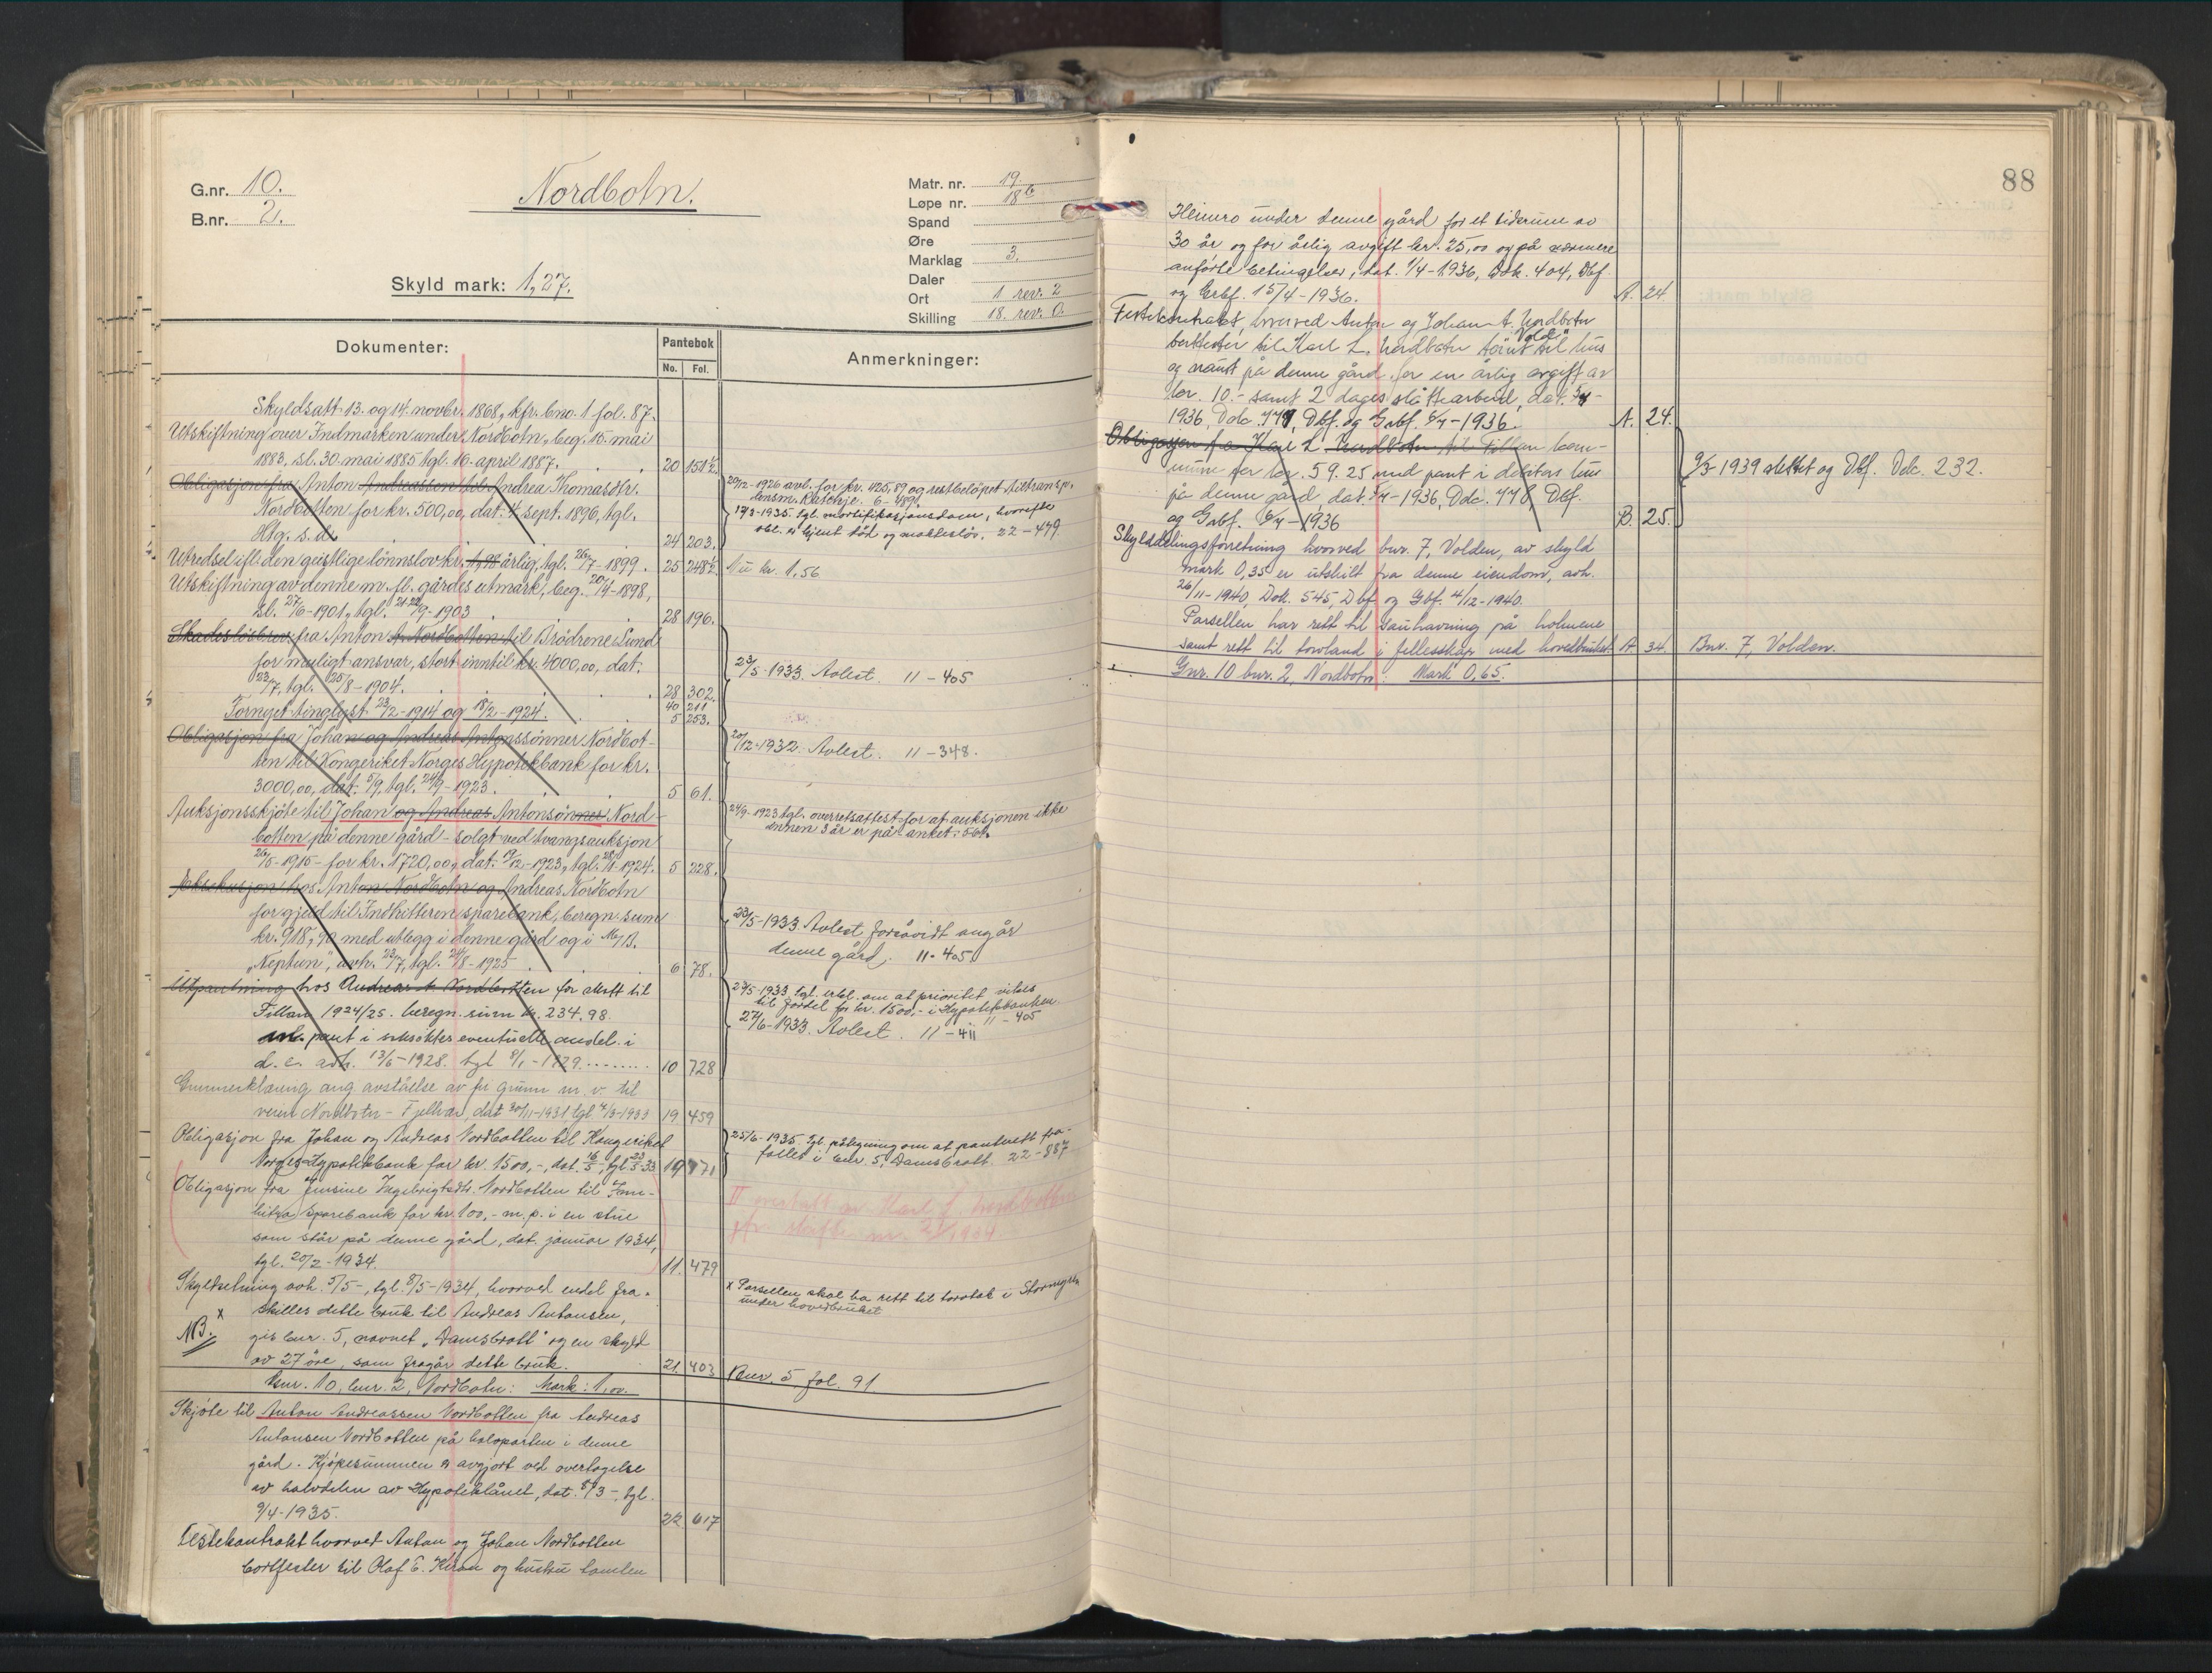 G.nr. 10.
B.nr. 2.
Nordbotn.
Skyld mark: 1,27.
Matr. nr. 19.
Løpe nr. 18 b
Spand
Øre
Marklag 3.
Daler
Ort 1 rev. 2
Skilling 18. rev. 0.
Dokumenter:
Pantebok
No. Fol.
Anmerkninger:
Skyldsatt 13. og 14. novbr. 1868, kfr. bno. 1 fol. 87.
Utskiftning over Indmarken under Nordbotn, beg. 15. mai
1883, sl. 30. mai 1885 tgl. 16. april 1887. 20 151½
Obligasjon fra Anton Andreassen til Andrea Thomasdtr.
Nordbotten for kr. 500,00, dat. sept. 1896, tgl.
Htg. s. d. 24 203.
20/12-1926 avl. for kr. 125,89 og restbeløpet til transp.
lensm. 6-
12/3-1935 tgl. mortifikasjonsdom, hvorefter
obl. er kjent död og maktesløs. 22-479
Utredsel ifl. den geistlige lønnslov kr. 1,98 årlig, tgl. 26/7-1899. 25 248½
Nu kr. 1,56
Utskiftning av denne m. fl. gårdes utmark, beg. 20/4-1898,
sl. 27/6-1901, tgl. 21-22/9-1903 28 196.
Skadesløsbrev fra Anton A. Nordbotten til Brödrene Sund
for muligt ansvar, stort inntil kr. 4000,00, dat.
23/7, tgl. 25/8-1904. 28 302.
23/5-1933. Avlest. 11-405
40 211
Fornyet tinglyst 23/2-1914 og 18/2-1924. 5 253.
Obligasjon fra Johan og Andreas Antonssönner Nordbot-
ten til Kongeriket Norges Hypotekbank for kr.
3000,00, dat. 5/9, tgl. 24/9-1923. 5 61.
20/12-1932. Avlest. 11-348.
Auksjonsskjöte til Johan og Andreas Antonsönner Nord-
botten på denne gård - solgt ved tvangsauksjon
26/5-1915 - for kr. 1720,00, dat. 19/12-1923, tgl. 28/1 1924. 5 228.
24/9-1923 tgl. overretsattest for at auksjonen ikke
innen 3 år er på anket: 5-61.
Eksekusjon hos Anton Nordbotn og Andreas Nordbotn
for gjeld til Indhitteren sparebank, beregn. sum
kr. 918,90 med utlegg i denne gård og i M/B.
"Neptun", avh. 23/7, tgl. 24/8-1925 6 78.
23/5-1933. Avlest forsåvidt angår
denne gård. 11-405
Utpantning hos Andreas A. Nordbotten for skatt til
Fillan 1924/25. beregn. sum kr. 234.98.
m. pant i saksøktes eventuelle andel i
d. e. avh. 13/6-1928. tgl 8/1-1929 10 728
23/5-1933 tgl. erkl. om at prioritet vikes
til fordel for kr. 1500,- i Hypotekbanken.
11-405
27/6-1933. Avlest. 11-411
Grunnerklæring ang avståelse av fri grunn m. v. til
veien Nordbotn - Fjellvær, dat 30/11-1931 tgl 4/3-1933 19 459
Obligasjon fra Johan og Andreas Nordbotten til Kongeriket
Norges Hypotekbank for kr. 1500,-, dat. 16/5, tgl 23/5-33 19 771
25/6-1935. tgl. påtegning om at pantrett fra-
falles i bnr. 5, Damsbratt. 22-887
Obligasjon fra Jensine Ingebrigtsdtr. Nordbotten til Inn-
hitra sparebank for kr. 100,- m. p. i en stue
som står på denne gård, dat. januar 1934,
tgl. 20/2-1934. 11. 479
overtatt av Karl L. Nordbotten
Skyldsetning avh. 5/5-, tgl. 8/5-1934, hvorved endel fra-
x skilles dette bruk til Andreas Antonsen,
NB. gis bnr. 5, navnet "Damsbratt" og en skyld
av 27 øre, som fragår dette bruk. 21. 403
x Parsellen skal ha rett til torvtak i Stormyren
under hovedbruket
Bnr. 5 fol. 91
Gnr. 10, bnr. 2, Nordbotn: Mark: 1,00.
Skjöte til Anton Andreassen Nordbotten fra Andreas
Antonsen Nordbotten på halvparten i denne
gård. Kjøpesummen er avgjort ved overtagelse
av halvdelen av Hypoteklånet, dat. 8/3-, tgl.
9/4-1935. 22 617
Festekontrakt hvorved Anton og Johan Nordbotten
bortfester til Olaf E. Kiran og hustru tomten
88
Heimro under denne gård for et tidsrum av
30 år og for årlig avgift kr. 25,00 og på nærmere
anførte betingelser, dat. 1/4-1936, Dok. 404, Dbf
og Grbf. 15/4-1936. A. 24
Festekontrakt, hvorved Anton og Johan A. Nordbotn
bortfester til Karl L. Nordbotn tomt "Volden" til hus
og naust på denne gård for en årlig avgift av
kr. 10.- samt 2 dages slåttearbeid, dat. 3/7-
1936, Dok. 777, Dbf. og Grbf. 6/7-1936. A. 24.
Obligasjon fra Karl L. Nordbotn til Fillan kom-
mune for kr. 59.25 med pant i debitors hus
på denne gård, dat. 3/7-1936, Dok. 778, Dbf.
og Grbf. 6/7-1936 B. 25.
9/3-1939 slettet og Dbf. Dok. 232.
Skylddelingsforretning hvorved bnr. 7, Volden, av skyld
mark 0,35 er utskilt fra denne eiendom, avh.
26/11-1940, Dok. 545, Dbf og Gbf. 4/12-1940.
Parsellen har rett til sauhavning på holmene
samt rett til torvland i fellesskap med hovedbruket. A. 34. Bnr. 7, Volden.
Gnr. 10 bnr. 2, Nordbotn: Mark 0,65.